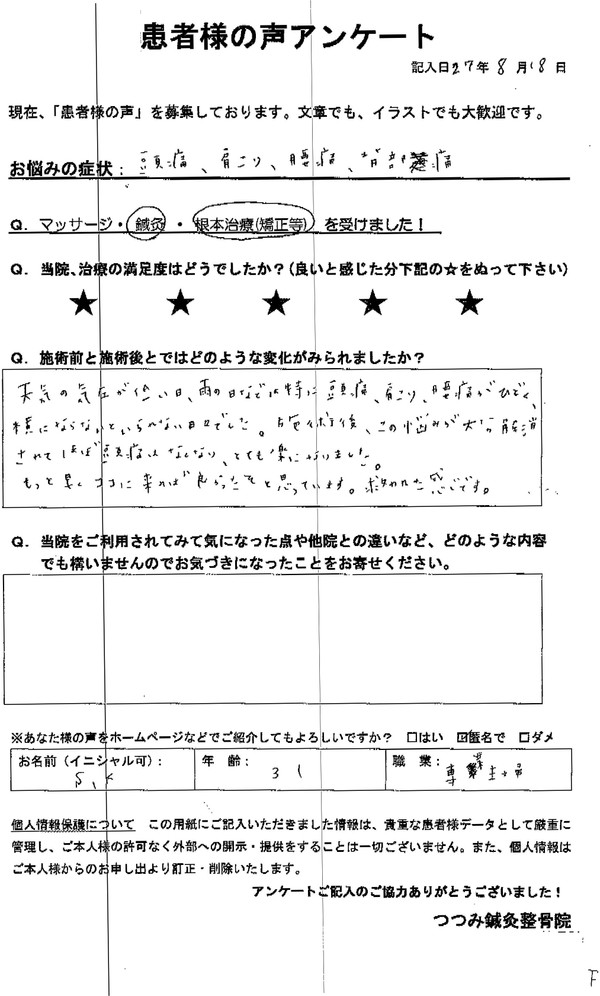 患者様の声アンケート
記入日27年8月18日
現在、「患者様の声」を募集しております。文章でも、イラストでも大歓迎です。
お悩みの症状：頭痛、肩こり、腰痛、背部痛
Q．マッサージ・鍼灸・根本治療(矯正等)を受けました！
Q．当院、治療の満足度はどうでしたか？(良いと感じた分下記の☆をぬって下さい)
★ ★ ★ ★ ★
Q．施術前と施術後とではどのような変化がみられましたか？
天気の気圧が低い日、雨の日などは特に頭痛、肩こり、腰痛がひどく、
横にならないといられない日々でした。施術後、この悩みが大分解消
されてほぼ頭痛はなくなり、とても楽になりました。
もっと早くココに来れば良かったなと思っています。救われた感じです。
Q．当院をご利用されてみて気になった点や他院との違いなど、どのような内容
でも構いませんのでお気づきになったことをお寄せください。
※あなた様の声をホームページなどでご紹介してもよろしいですか？ □はい ☑匿名で □ダメ
お名前（イニシャル可）： S.K
年 齢： 31
職 業： 専業主婦
個人情報保護について この用紙にご記入いただきました情報は、貴重な患者様データとして厳重に
管理し、ご本人様の許可なく外部への開示・提供をすることは一切ございません。また、個人情報は
ご本人様からのお申し出より訂正・削除いたします。
アンケートご記入のご協力ありがとうございました！
つつみ鍼灸整骨院
F